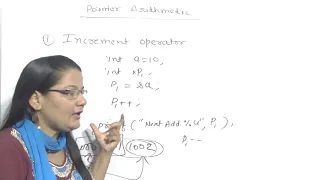 Pointer Arithmetic
① Increment operator
int a=10,
int *P₁,
P₁ = &a,
P₁++,
("Next Add %u", P₁),
1002
P₁--